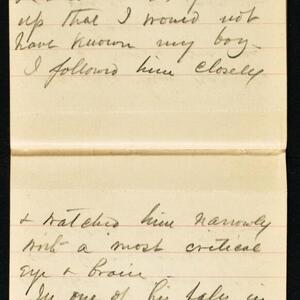 up that I would not
have known my boy—
I followed him closely
& watched him narrowly
with a most critical
eye & brain—
In one of his falls in